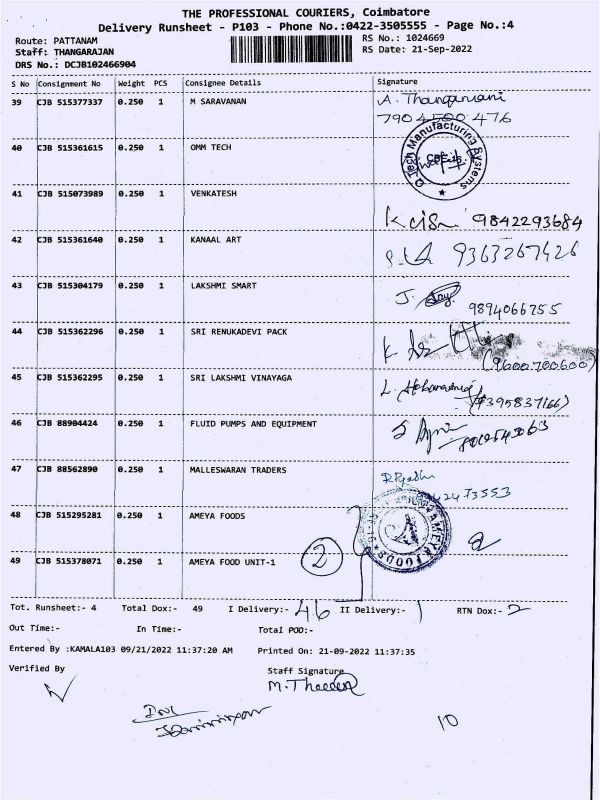 THE PROFESSIONAL COURIERS, Coimbatore
Delivery Runsheet - P103 - Phone No.:0422-3505555 - Page No.:4
Route: PATTANAM
RS No.: 1024669
Staff: THANGARAJAN
RS Date: 21-Sep-2022
DRS No.: DCJB102466904
S No Consignment No Weight PCS Consignee Details Signature
39 CJB 515377337 0.250 1 M SARAVANAN A. Thangamani
7904500476
40 CJB 515361615 0.250 1 OMM TECH
Tech Manufacturing Systems
41 CJB 515073989 0.250 1 VENKATESH
9842293684
42 CJB 515361640 0.250 1 KANAAL ART
9363267426
43 CJB 515304179 0.250 1 LAKSHMI SMART J.
9894066755
44 CJB 515362296 0.250 1 SRI RENUKADEVI PACK K
(9600700600)
45 CJB 515362295 0.250 1 SRI LAKSHMI VINAYAGA L.
46 CJB 88904424 0.250 1 FLUID PUMPS AND EQUIPMENT
47 CJB 88562890 0.250 1 MALLESWARAN TRADERS
48 CJB 515295281 0.250 1 AMEYA FOODS
AMEYA FOODS
49 CJB 515378071 0.250 1 AMEYA FOOD UNIT-1 2
Tot. Runsheet:- 4 Total Dox:- 49 I Delivery:- 46 II Delivery:- 1 RTN Dox:- 2
Out Time:- In Time:- Total POD:-
Entered By :KAMALA103 09/21/2022 11:37:20 AM Printed On: 21-09-2022 11:37:35
Verified By Staff Signature
10